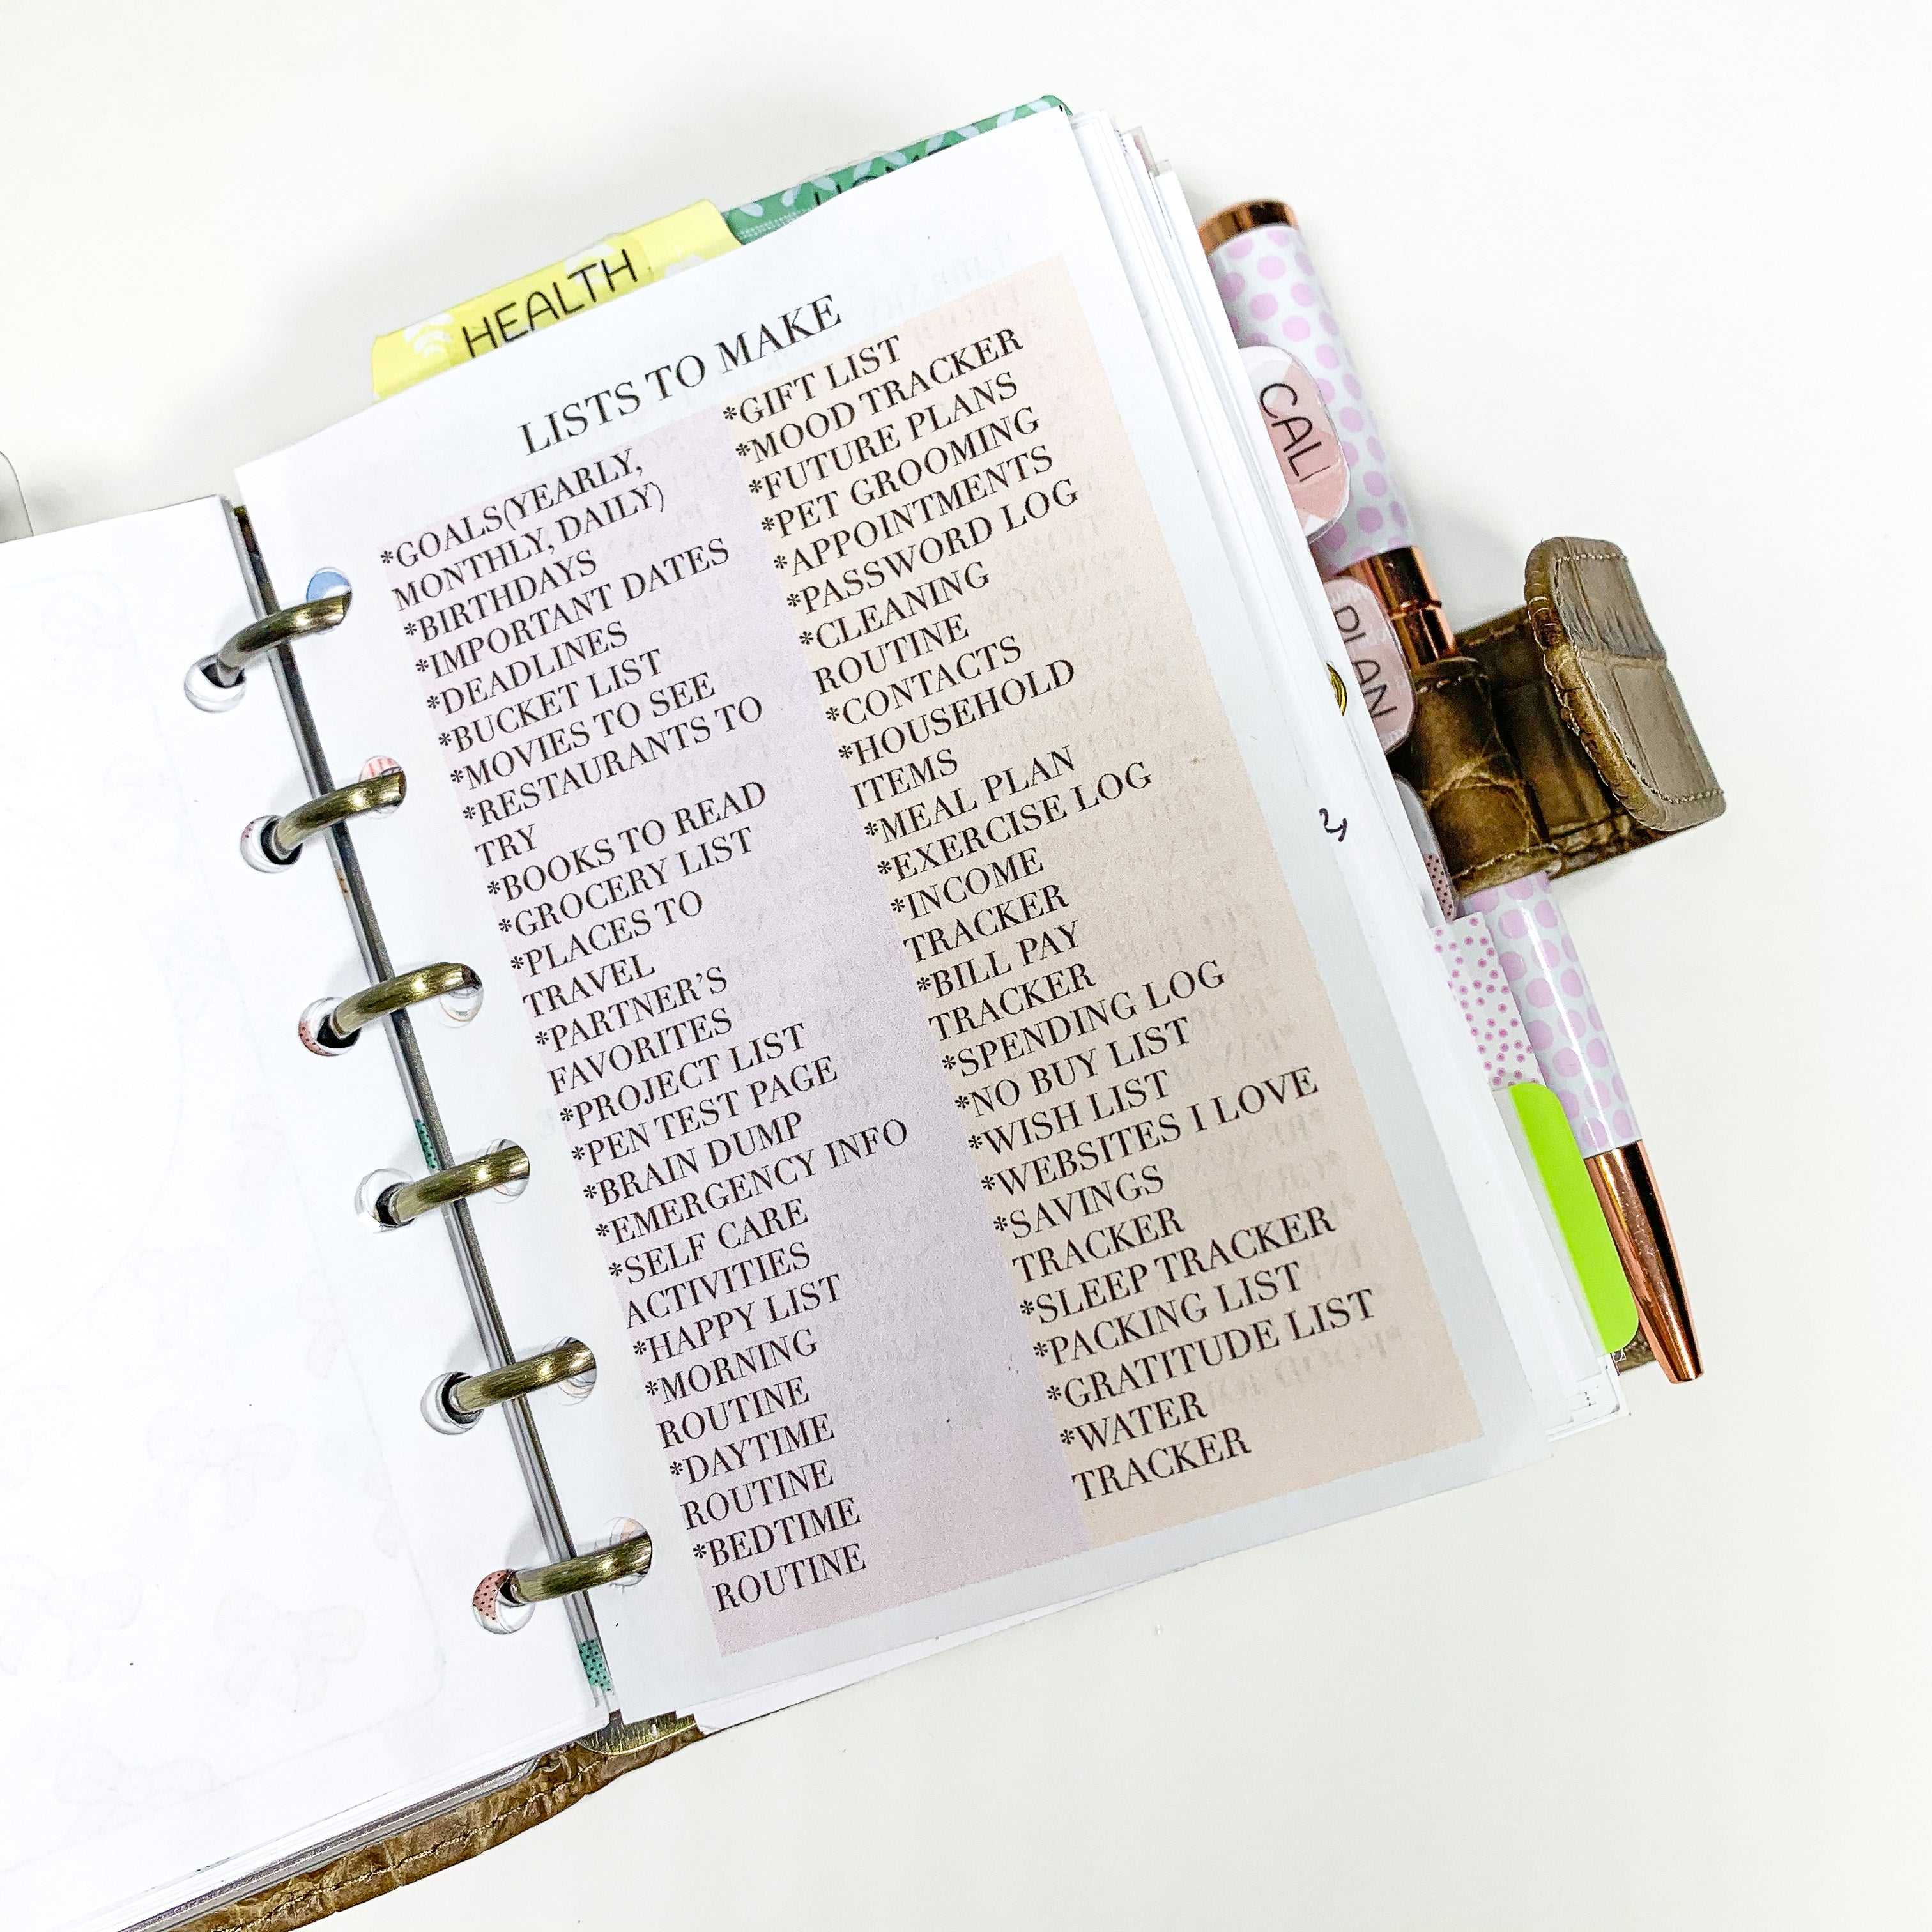 HEALTH
LISTS TO MAKE
*GOALS(YEARLY,
MONTHLY, DAILY)
*BIRTHDAYS
*IMPORTANT DATES
*DEADLINES
*BUCKET LIST
*MOVIES TO SEE
*RESTAURANTS TO
TRY
*BOOKS TO READ
*GROCERY LIST
*PLACES TO
TRAVEL
*PARTNER'S
FAVORITES
*PROJECT LIST
*PEN TEST PAGE
*BRAIN DUMP
*EMERGENCY INFO
*SELF CARE
ACTIVITIES
*HAPPY LIST
*MORNING
ROUTINE
*DAYTIME
ROUTINE
*BEDTIME
ROUTINE
*GIFT LIST
*MOOD TRACKER
*FUTURE PLANS
*PET GROOMING
*APPOINTMENTS
*PASSWORD LOG
*CLEANING
ROUTINE
*CONTACTS
*HOUSEHOLD
ITEMS
*MEAL PLAN
*EXERCISE LOG
*INCOME
TRACKER
*BILL PAY
TRACKER
*SPENDING LOG
*NO BUY LIST
*WISH LIST
*WEBSITES I LOVE
*SAVINGS
TRACKER
*SLEEP TRACKER
*PACKING LIST
*GRATITUDE LIST
*WATER
TRACKER
CAL
PLAN